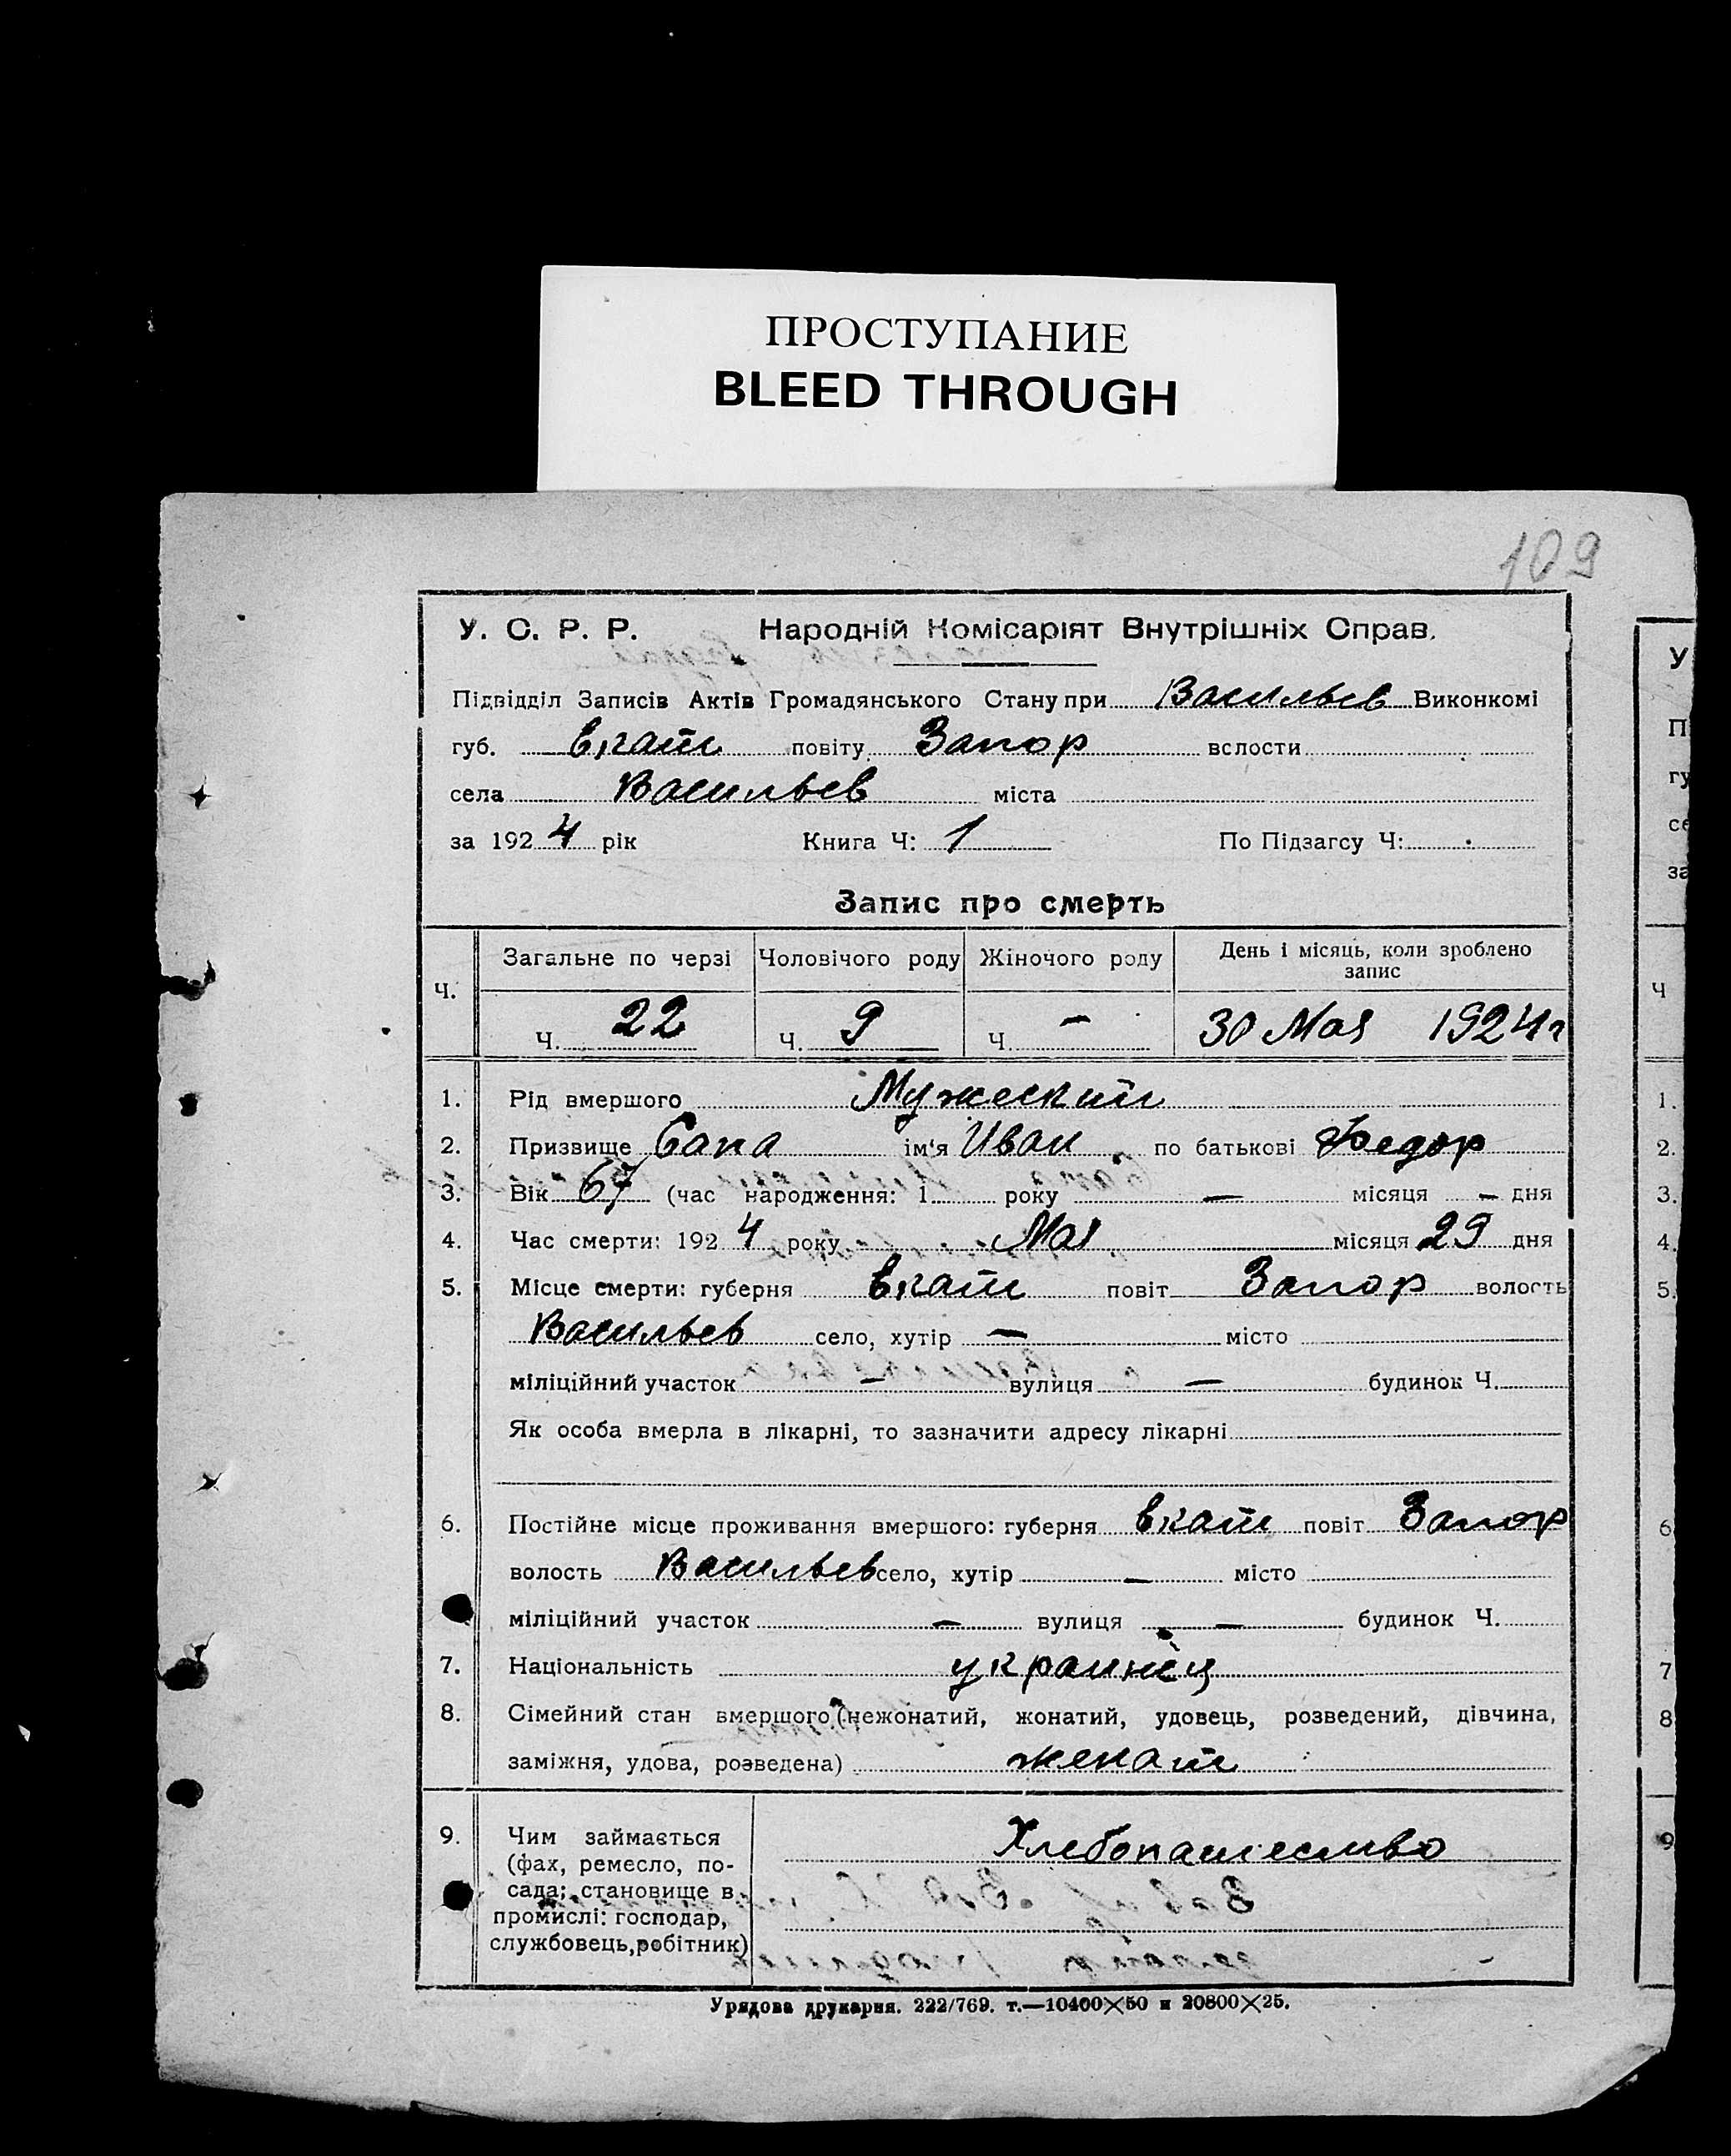 ПРОСТУПАНИЕ
BLEED THROUGH
109
У. С. Р. Р. Народній Комісаріят Внутрішніх Справ.
Підвідділ Записів Актів Громадянського Стану при Васильев Виконкомі
губ. Екат повіту Запор вслости
села Васильев міста
за 1924 рік Книга Ч: 1 По Підзагсу Ч:
Запис про смерть
Ч. Загальне по черзі Чоловічого роду Жіночого роду День і місяць, коли зроблено запис
Ч. 22 Ч. 9 Ч. — 30 Мая 1924 г
1. Рід вмершого Мужеский
2. Призвище Сапа ім'я Иван по батькові Федор
3. Вік 67 (час народження: 1 року — місяця — дня
4. Час смерти: 1924 року Мая місяця 29 дня
5. Місце смерти: губерня Екат повіт Запор волость
Васильев село, хутір — місто
міліційний участок — вулиця — будинок Ч.
Як особа вмерла в лікарні, то зазначити адресу лікарні
6. Постійне місце проживання вмершого: губерня Екат повіт Запор
волость Васильев село, хутір — місто
міліційний участок — вулиця — будинок Ч.
7. Національність украинец
8. Сімейний стан вмершого (нежонатий, жонатий, удовець, розведений, дівчина,
заміжня, удова, розведена) женат
9. Чим займається Хлебопашество
(фах, ремесло, по-
сада; становище в
промислі: господар,
службовець, робітник)
Урядова друкарня. 222/769. т.—10400×50 и 20800×25.
У
П
гу
се
за
Ч
1.
2.
3.
4.
5.
6
7
8
9